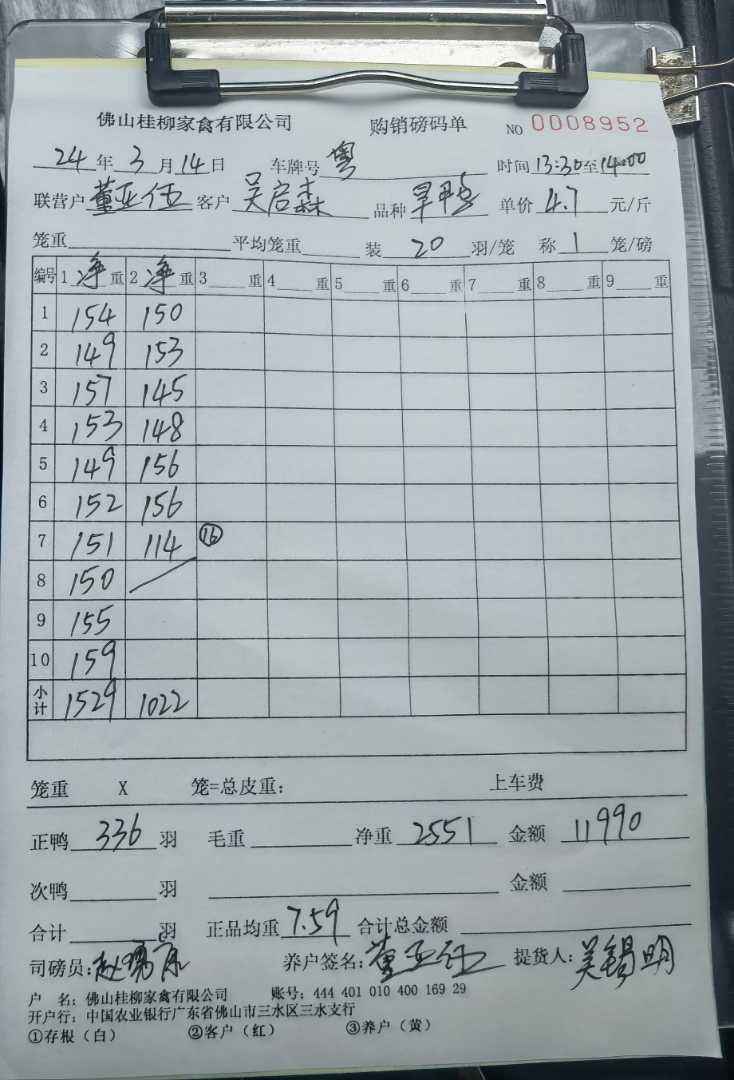 佛山桂柳家禽有限公司 购销磅码单 NO 0008952
24年 3月14日 车牌号 粤 时间 13:30至14:00
联营户 董亚伍 客户 吴启森 品种 旱鸭 单价 4.7 元/斤
笼重 平均笼重 装 20 羽/笼 称 1 笼/磅
编号 1 净 重 2 净 重 3 重 4 重 5 重 6 重 7 重 8 重 9 重
1 154 150
2 149 153
3 157 145
4 153 148
5 149 156
6 152 156
7 151 114 ⑯
8 150
9 155
10 159
小计 1529 1022
笼重 X 笼=总皮重: 上车费
正鸭 336 羽 毛重 净重 2551 金额 11990
次鸭 羽 金额
合计 羽 正品均重 7.59 合计总金额
司磅员: 养户签名: 董亚伍 提货人: 吴锡明
户 名: 佛山桂柳家禽有限公司 账号: 444 401 010 400 169 29
开户行: 中国农业银行广东省佛山市三水区三水支行
①存根(白) ②客户(红) ③养户(黄)